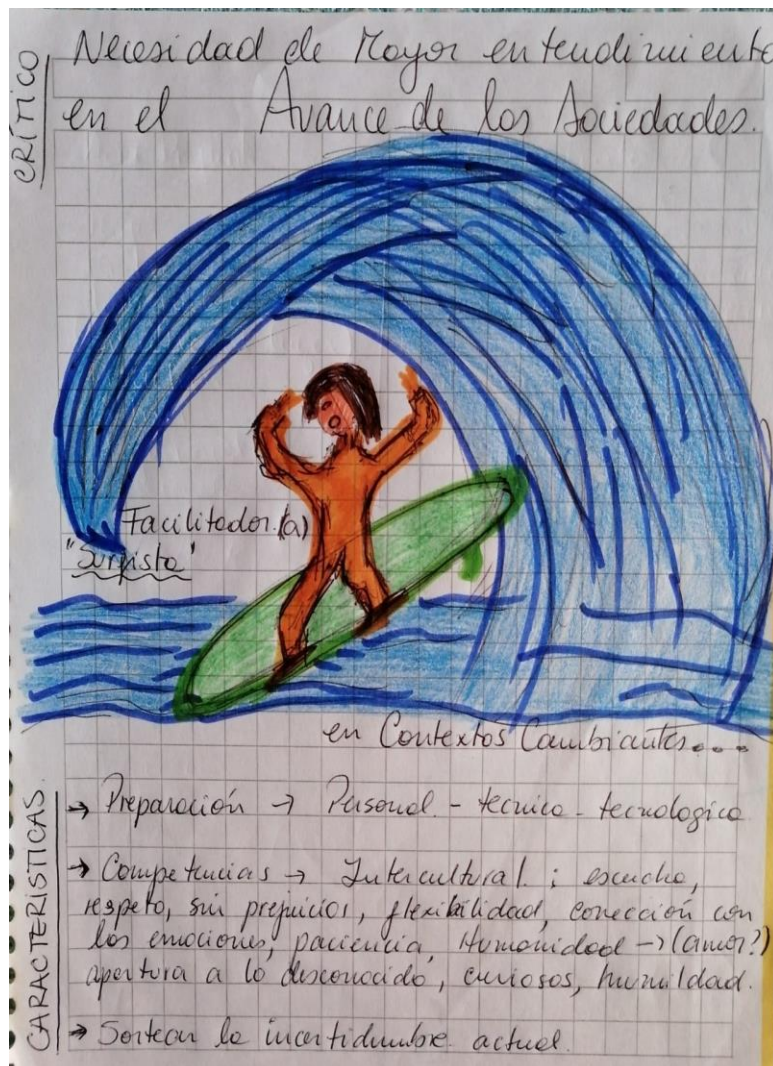 CRÍTICO
Necesidad de Mayor entendimiento
en el Avance de las Sociedades.
Facilitador.(a)
"Surfista"
en Contextos Cambiantes....
CARACTERÍSTICAS.
→ Preparación → Personal - tecnico - tecnologico
→ Competencias → Intercultural ; escucha,
respeto, sin prejuicios, flexibilidad, conección con
las emociones, paciencia, Humanidad → (amor?)
apertura a lo desconocido, curiosos, humildad.
→ Sortear la incertidumbre actual.